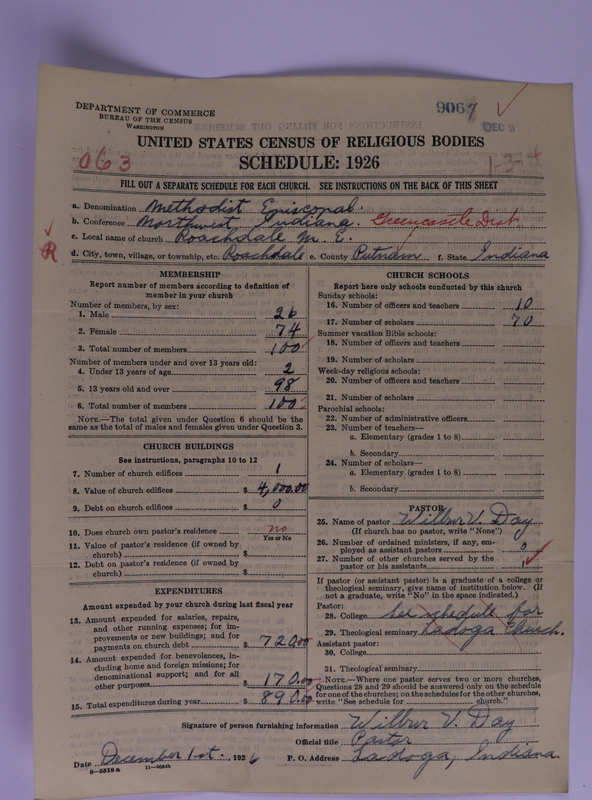 DEPARTMENT OF COMMERCE
BUREAU OF THE CENSUS
WASHINGTON
9067
DEC 3
UNITED STATES CENSUS OF RELIGIOUS BODIES
063
SCHEDULE: 1926
1-3-4
FILL OUT A SEPARATE SCHEDULE FOR EACH CHURCH. SEE INSTRUCTIONS ON THE BACK OF THIS SHEET
a. Denomination Methodist Episcopal.
b. Conference Northwest Indiana. Greencastle Dist.
c. Local name of church Roachdale M. E.
R
d. City, town, village, or township, etc. Roachdale e. County Putnam f. State Indiana
MEMBERSHIP
Report number of members according to definition of
member in your church
Number of members, by sex:
1. Male 26
2. Female 74
3. Total number of members 100
Number of members under and over 13 years old:
4. Under 13 years of age 2
5. 13 years old and over 98
6. Total number of members 100
NOTE.—The total given under Question 6 should be the
same as the total of males and females given under Question 3.
CHURCH BUILDINGS
See instructions, paragraphs 10 to 12
7. Number of church edifices 1
8. Value of church edifices $ 4,000.00
9. Debt on church edifices $ 0
10. Does church own pastor's residence no
Yes or No
11. Value of pastor's residence (if owned by
church) $
12. Debt on pastor's residence (if owned by
church) $
EXPENDITURES
Amount expended by your church during last fiscal year
13. Amount expended for salaries, repairs,
and other running expenses; for im-
provements or new buildings; and for
payments on church debt $ 720.00
14. Amount expended for benevolences, in-
cluding home and foreign missions; for
denominational support; and for all
other purposes $ 170.00
15. Total expenditures during year $ 890.00
CHURCH SCHOOLS
Report here only schools conducted by this church
Sunday schools:
16. Number of officers and teachers 10
17. Number of scholars 70
Summer vacation Bible schools:
18. Number of officers and teachers
19. Number of scholars
Week-day religious schools:
20. Number of officers and teachers
21. Number of scholars
Parochial schools:
22. Number of administrative officers
23. Number of teachers—
a. Elementary (grades 1 to 8)
b. Secondary
24. Number of scholars—
a. Elementary (grades 1 to 8)
b. Secondary
PASTOR
25. Name of pastor Wilbur V. Day
(If church has no pastor, write "None")
26. Number of ordained ministers, if any, em-
ployed as assistant pastors 0
27. Number of other churches served by the
pastor or his assistants 1
If pastor (or assistant pastor) is a graduate of a college or
theological seminary, give name of institution below. (If
not a graduate, write "No" in the space indicated.)
Pastor:
28. College See schedule for
29. Theological seminary Ladoga Church.
Assistant pastor:
30. College
31. Theological seminary
NOTE.—Where one pastor serves two or more churches,
Questions 28 and 29 should be answered only on the schedule
for one of the churches; on the schedules for the other churches,
write "See schedule for church."
Signature of person furnishing information Wilbur V. Day
Official title Pastor
Date December 1st., 1926 P. O. Address Ladoga, Indiana
8-5518a 11-9024b